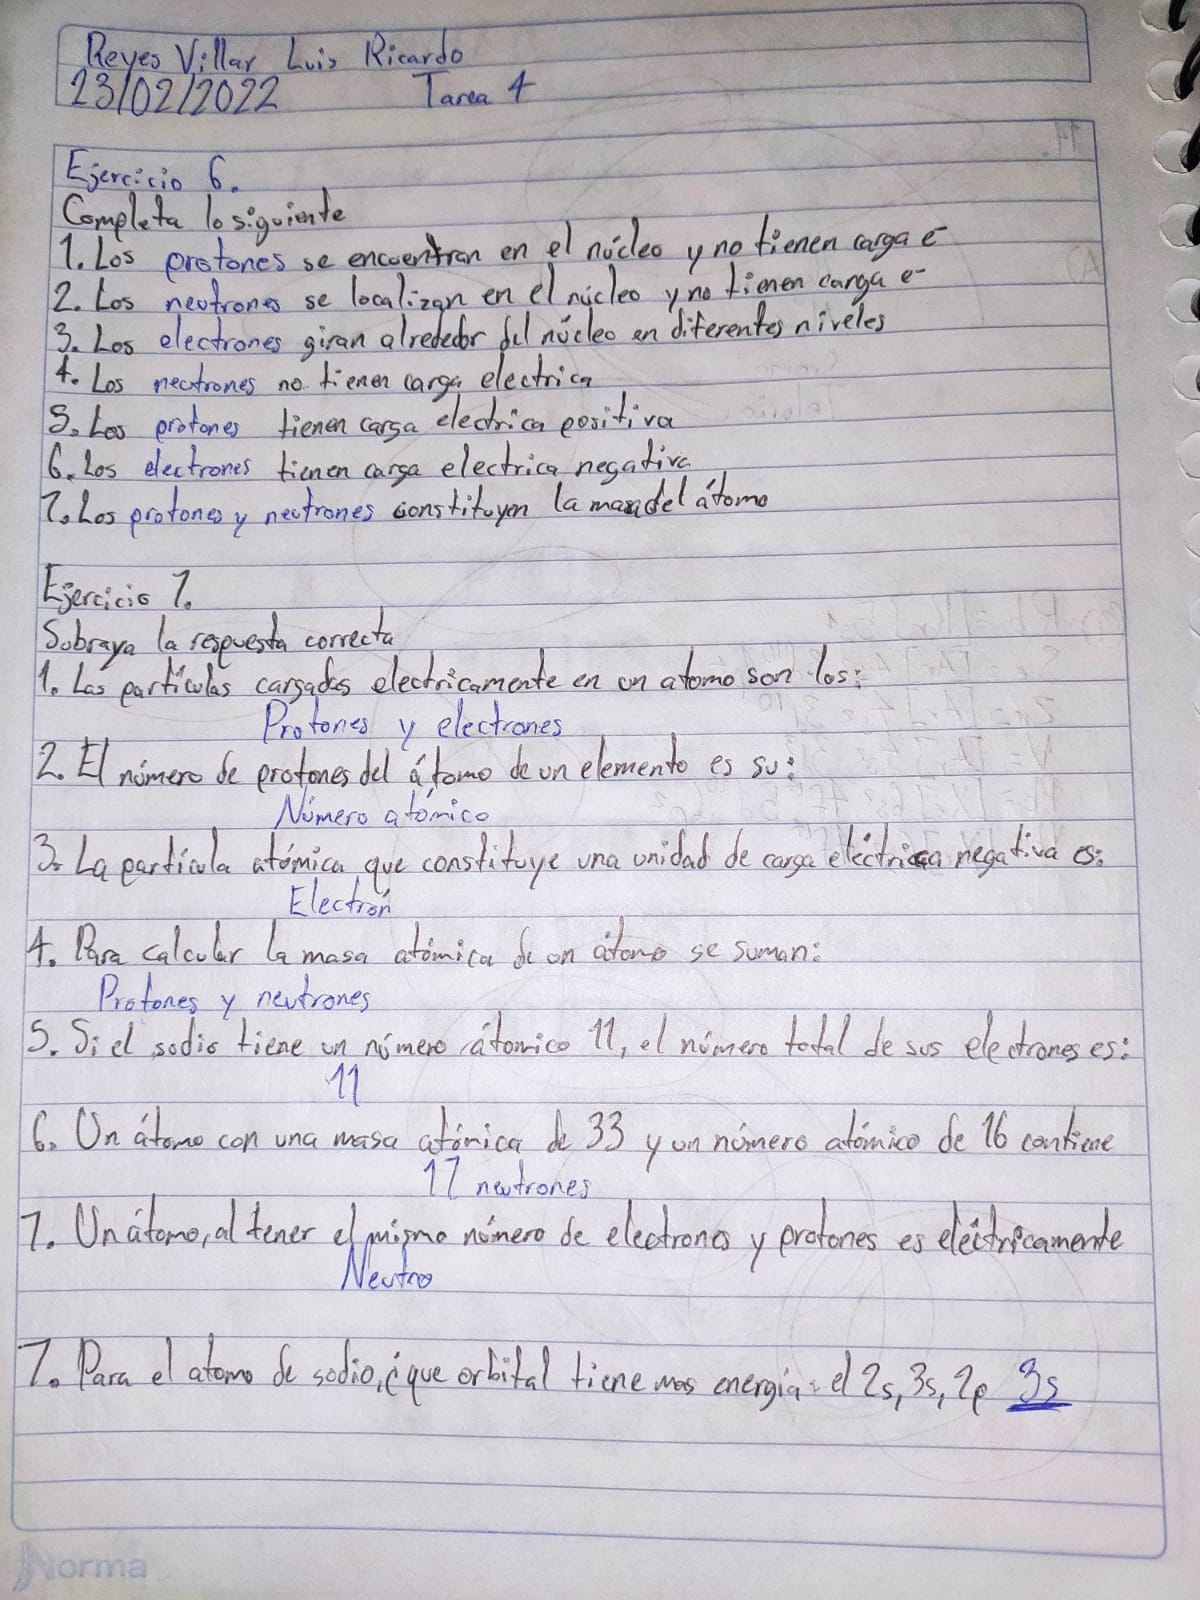 Reyes Villar Luis Ricardo
23/02/2022 Tarea 4
Ejercicio 6.
Completa lo siguiente
1. Los protones se encuentran en el núcleo y no tienen carga e-
2. Los neutrones se localizan en el núcleo y no tienen carga e-
3. Los electrones giran alrededor del núcleo en diferentes niveles
4. Los neutrones no tienen carga electrica
5. Los protones tienen carga electrica positiva
6. Los electrones tienen carga electrica negativa
7. Los protones y neutrones constituyen la masa del átomo
Ejercicio 7.
Sobraya la respuesta correcta
1. Las partículas cargadas electricamente en un atomo son los:
Protones y electrones
2. El número de protones del átomo de un elemento es su:
Número atómico
3. La partícula atómica que constituye una unidad de carga eléctrica negativa es:
Electrón
4. Para calcular la masa atómica de un átomo se suman:
Protones y neutrones
5. Si el sodio tiene un número átomico 11, el número total de sus electrones es:
11
6. Un átomo con una masa atómica de 33 y un número atómico de 16 contiene
17 neutrones
7. Un átomo, al tener el mismo número de electrones y protones es eléctricamente
Neutro
7. Para el atomo de sodio, ¿que orbital tiene mas energia: el 2s, 3s, 2p 3s
Norma